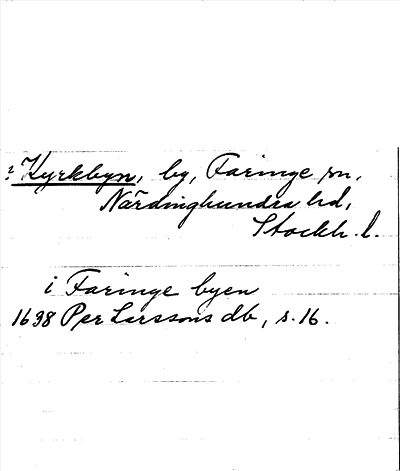 ? Kyrkbyn, by, Faringe sn,
Närdinghundra hd,
Stockh. l.
i Faringe byen
1638 Per Larssons db, s. 16.